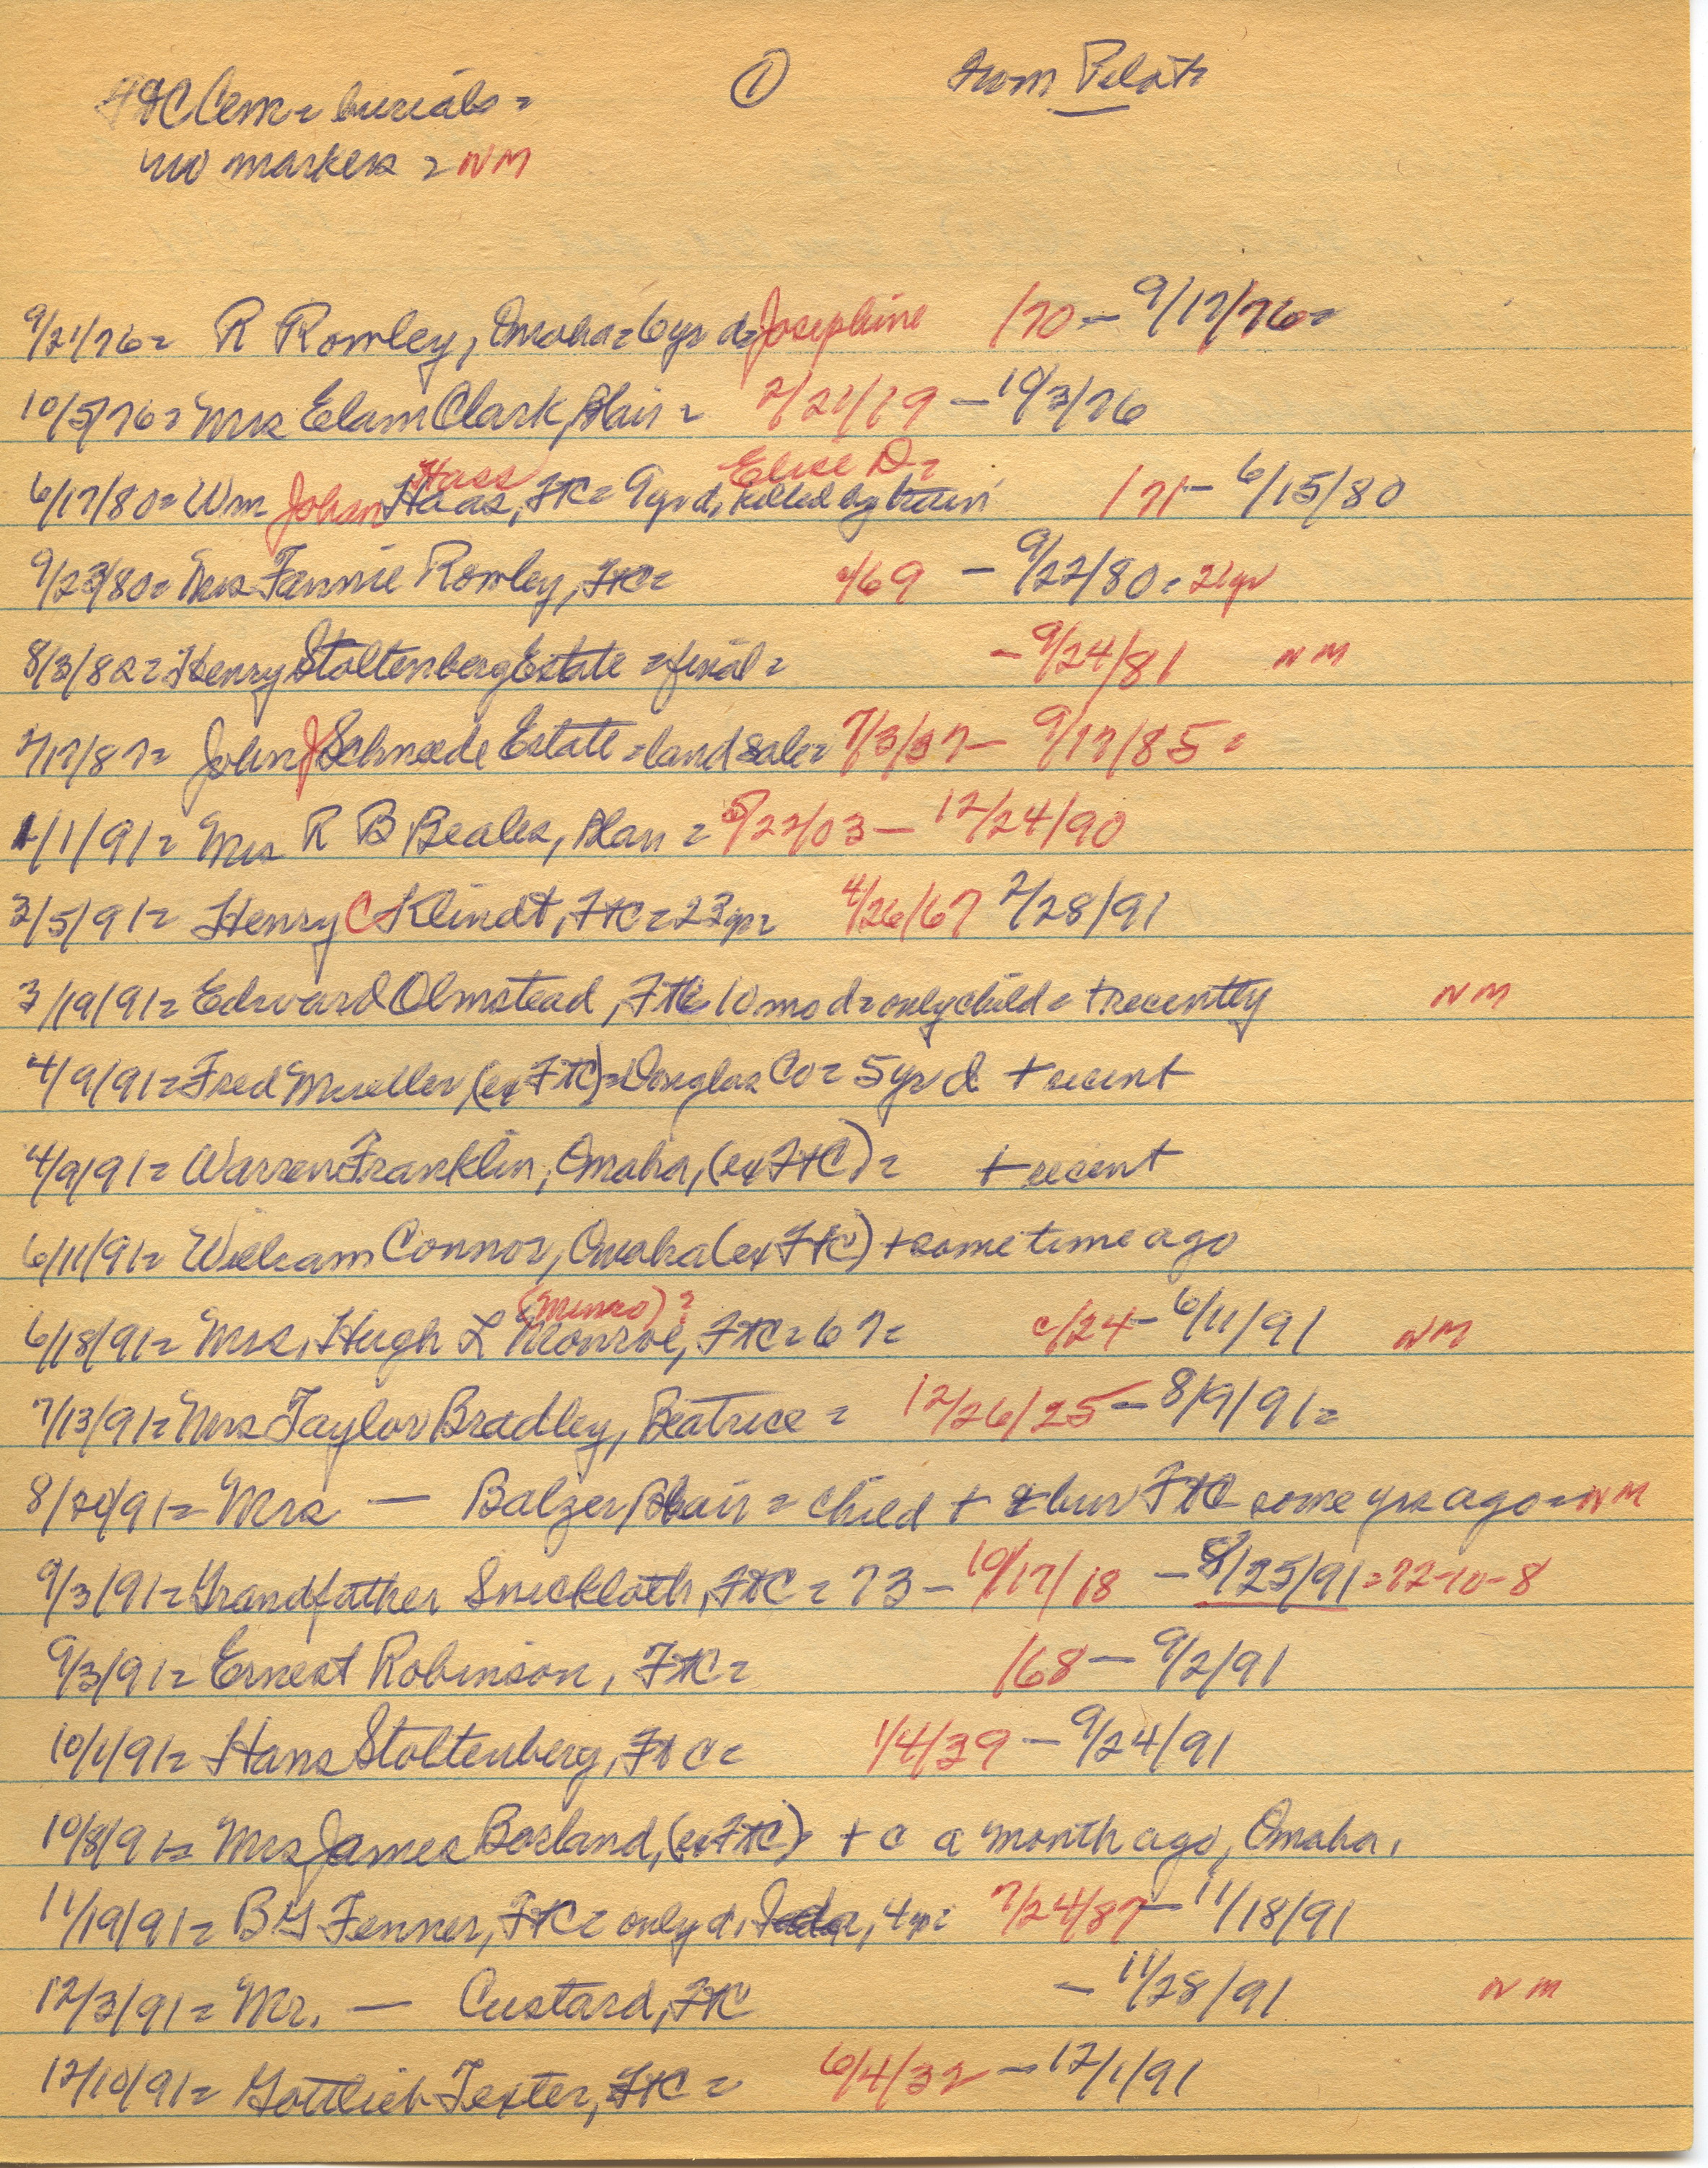 FtC Cem = burials = ① from Pilot =
no markers = NM
9/21/76 = R Rowley, Omaha = 6yr d = Josephine /70 - 9/17/76 =
10/5/76 = Mrs Elam Clark, Blair = 2/21/19 - 10/3/76
Hass Elise D =
6/17/80 = Wm Johan Haas, FtC = 9yr d, killed by train /71 - 6/15/80
9/23/80 = Mrs Fannie Rowley, FtC = /69 - 9/22/80 = 21yr
8/3/82 = Henry Stoltenberg Estate = final = - 9/24/81 NM
2/17/87 = John J Schneede Estate = land sale = 7/3/37 - 9/17/85 =
1/1/91 = Mrs R B Beales, Blair = 5/22/03 - 12/24/90
3/5/91 = Henry C Klindt, FtC = 23yr = 4/26/67 2/28/91
3/19/91 = Edward Olmstead, FtC 10 mo d = only child = + recently NM
4/9/91 = Fred Mueller (ex FtC) = Douglas Co = 5yr d + recent
4/9/91 = Warren Franklin, Omaha, (ex FtC) = + recent
6/11/91 = William Connor, Omaha (ex FtC) + sometime ago
(Munro) ?
6/18/91 = Mrs, Hugh L Monroe, FtC = 67 = c/24 - 6/11/91 NM
7/13/91 = Mrs Taylor Bradley, Beatrice = 12/26/25 - 8/9/91 =
8/20/91 = Mrs — Balzer, Blair = child + & bur FtC some yrs ago = NM
9/3/91 = Grandfather Sneckloth, FtC = 73 - 10/17/18 - 8/25/91 = 72-10-8
9/3/91 = Ernest Robinson, FtC = /68 - 9/2/91
10/1/91 = Hans Stoltenberg, FtC = 1/4/39 - 9/24/91
10/8/91 = Mrs James Borland, (ex FtC) + c a month ago, Omaha,
11/19/91 = B G Fenner, FtC = only d, 4yr = 7/24/87 - 11/18/91
12/3/91 = Mr. — Custard, FtC - 11/28/91 NM
12/10/91 = Gottlieb Texter, FtC = 6/4/32 - 12/1/91